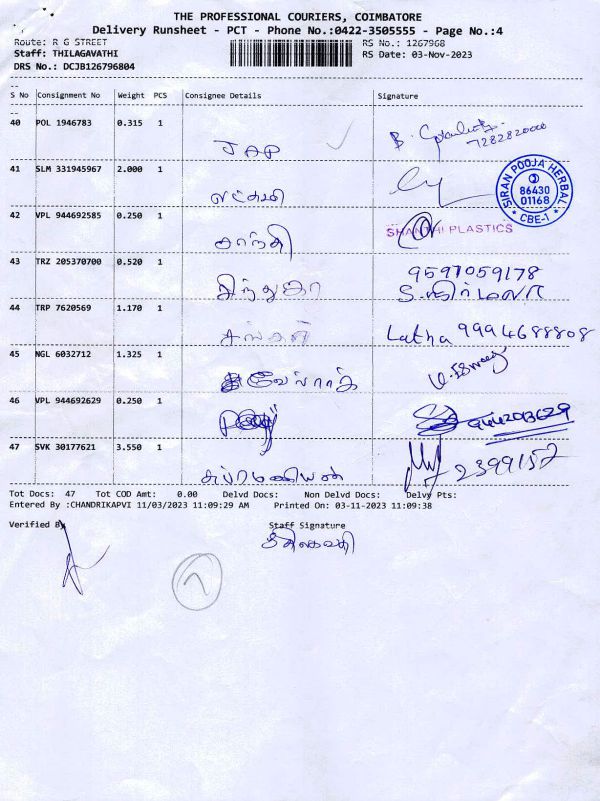 THE PROFESSIONAL COURIERS, COIMBATORE
Delivery Runsheet - PCT - Phone No.:0422-3505555 - Page No.:4
Route: R G STREET RS No.: 1267968
Staff: THILAGAVATHI RS Date: 03-Nov-2023
DRS No.: DCJB126796804
S No Consignment No Weight PCS Consignee Details Signature
40 POL 1946783 0.315 1 JAP 7282820000
41 SLM 331945967 2.000 1 லட்சுமி
SIRAN POOJA HERBAL 86430 01168 * CBE-1 *
42 VPL 944692585 0.250 1 சாந்தி SHANTHI PLASTICS
43 TRZ 205370700 0.520 1 9597059178
S. நிர்மலா
44 TRP 7620569 1.170 1 Latha 9994688808
45 NGL 6032712 1.325 1
46 VPL 944692629 0.250 1
47 SVK 30177621 3.550 1 சுப்ரமணியன் 2399157
Tot Docs: 47 Tot COD Amt: 0.00 Delvd Docs: Non Delvd Docs: Delvy Pts:
Entered By :CHANDRIKAPVI 11/03/2023 11:09:29 AM Printed On: 03-11-2023 11:09:38
Verified By Staff Signature
திலகவதி